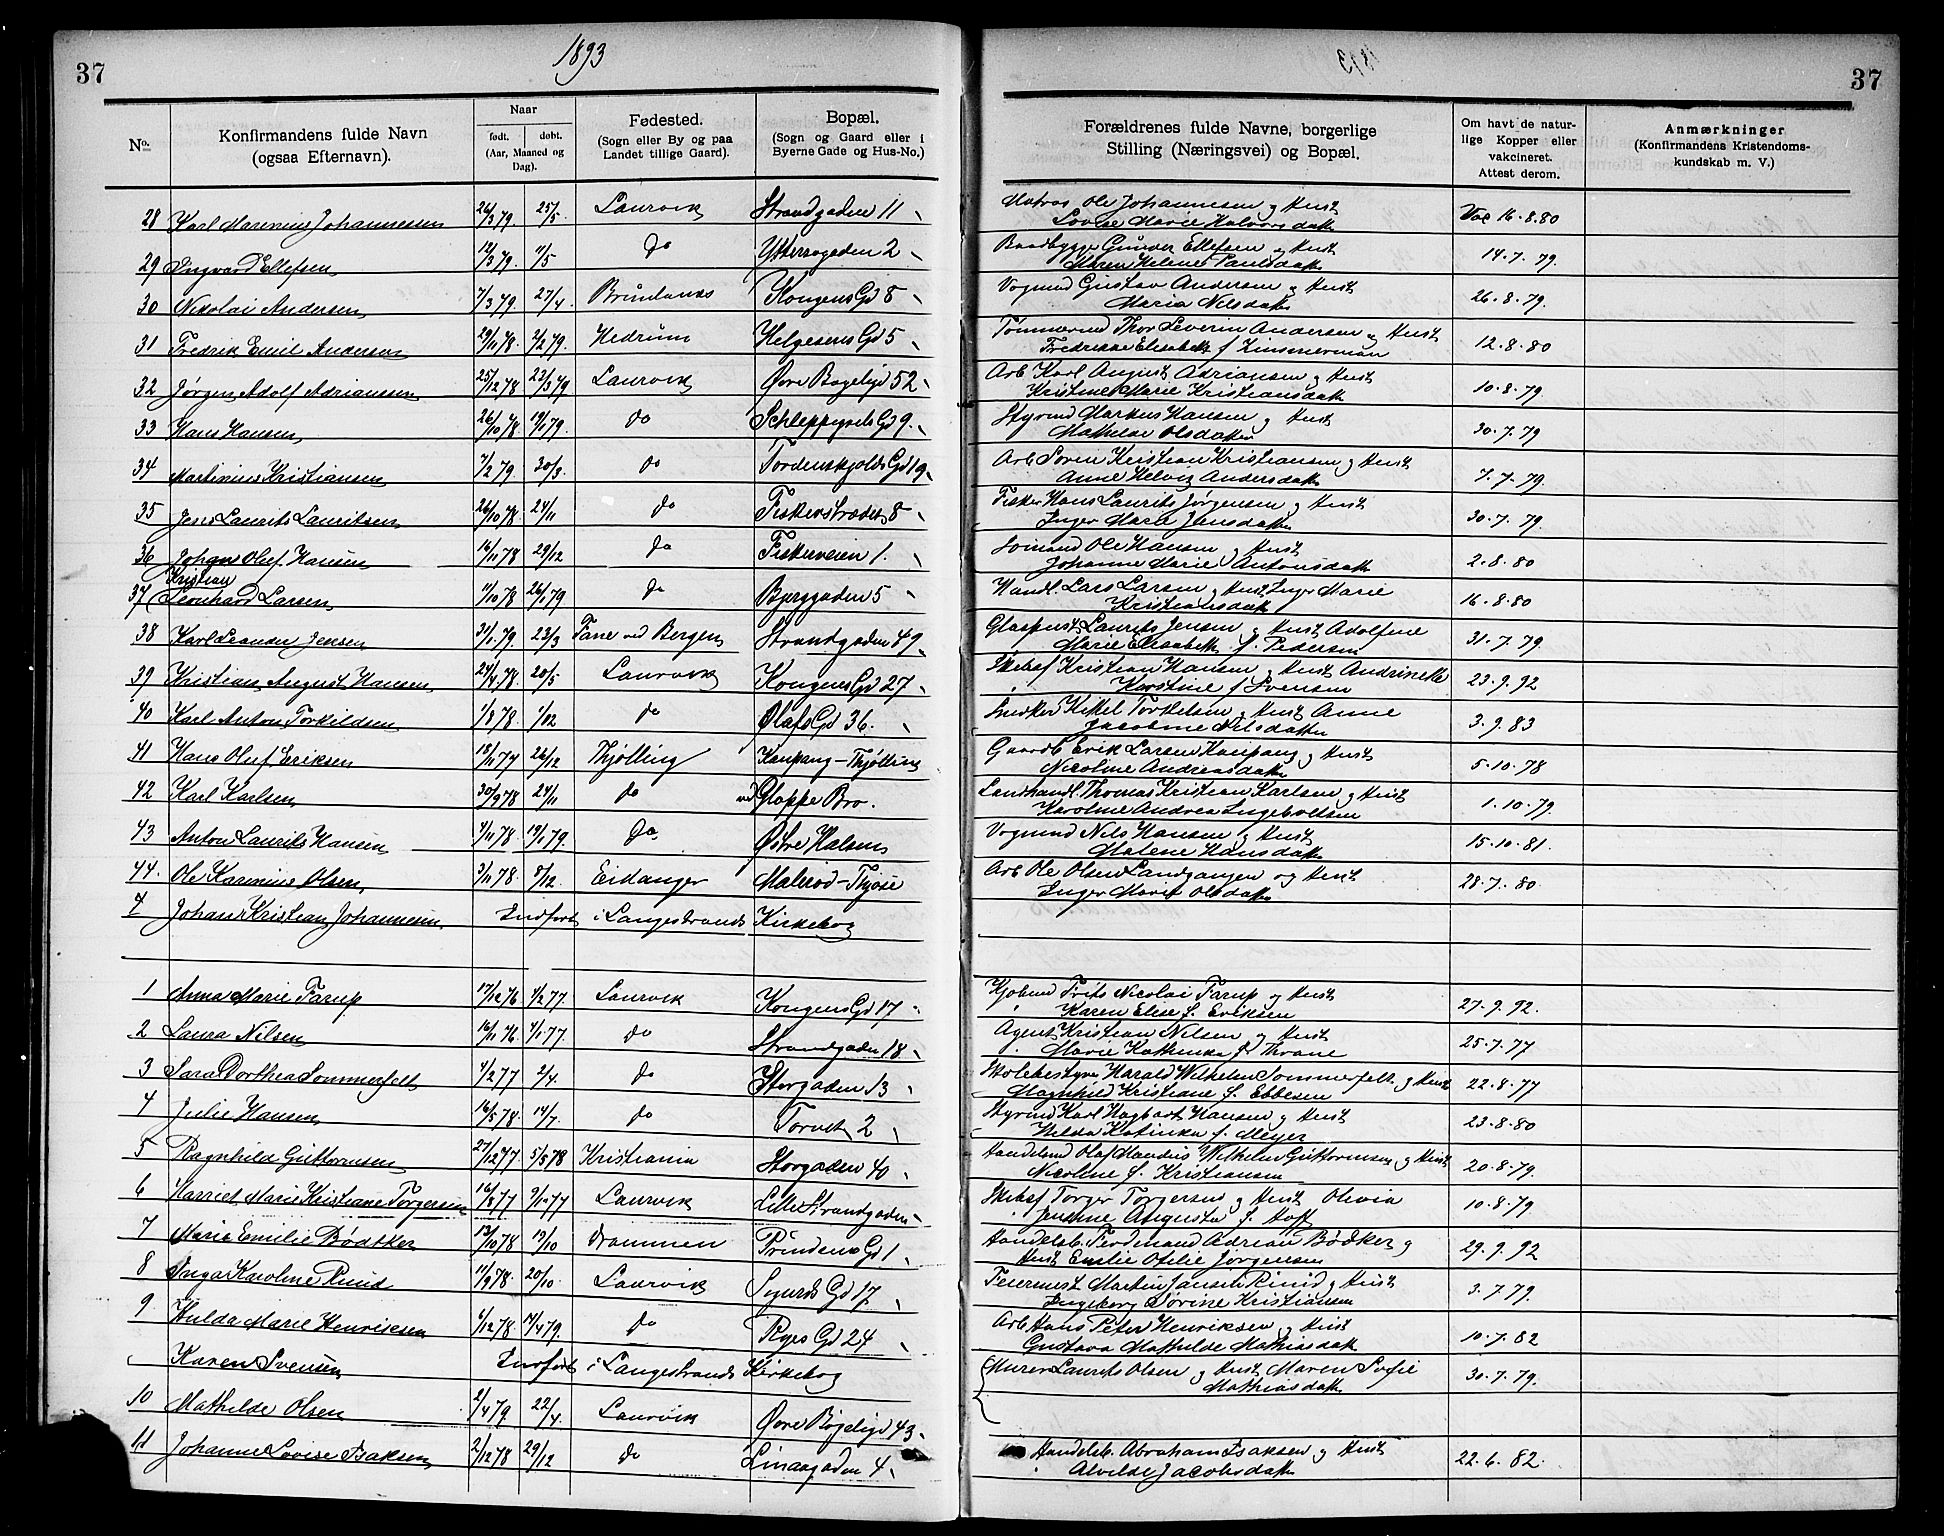 37
1893
No.
Konfirmandens fulde Navn
(ogsaa Efternavn).
Naar
født. døbt.
(Aar, Maaned og Dag).
Fødested.
(Sogn eller By og paa
Landet tillige Gaard).
Bopæl.
(Sogn og Gaard eller i
Byerne Gade og Hus-No.)
28 Karl Marenius Johannessen 26/3 79. 25/5. Laurvik Strandgaden 11
29 Ingvard Ellefsen 12/3 79. 11/5 do Yttersøgaden 2
30 Nikolai Andersen 7/3 79. 27/4 Brunlanes Kongens Gd 8
31 Fredrik Emil Andersen 29/11 78. 2/2 79. Hedrum Helgesens Gd 5
32 Jørgen Adolf Adriansen 25/12 78 23/3 79 Laurvik Øvre Bøgeligd 52
33 Hans Hansen 26/10 78 19/1 79. do Schleppegrels Gd 9.
34 Martinius Kristiansen 7/2 79. 30/3. do Tordenskjolds Gd 19
35 Jens Laurits Lauritsen 26/10 78 24/11 do Fiskerstrædet 8
36 Johan Oluf Hansen 16/11 78 29/12 do Fiskerveien 1.
Kristian
37 Leonhard Larsen 11/10 78 26/1 79 do Bjerggaden 5
38 Karl Leander Jensen 31/1 79. 23/3 Fane ved Bergen Strandgaden 49
39 Kristian August Hansen 24/4 78. 20/5 Laurvik Kongens Gd 27
40 Karl Anton Torkildsen 1/8 78. 1/12 do Olafs Gd 36.
41 Hans Oluf Eriksen 18/11 77 26/12 Thjølling Kaupang - Thjølling
42 Karl Karlsen 30/9 78 24/11 do ved Gloppe Bro.
43 Anton Laurits Hansen 4/11 78 19/1 79. do Østre Halsen
44. Ole Karenius Olsen 3/11 78. 8/12. Eidanger Malerød - Thjøse
7 Johan Kristian Johannesen Indført i Langestrands Kirkebog
1 Anna Marie Farup 17/12 76 4/2 77. Laurvik Kongens Gd 17
2 Laura Nilsen 16/11 76. 4/1 77 do Strandgaden 18
3 Sara Dorthea Sommerfelt 4/2 77 2/4. do Storgaden 13
4 Julie Hansen 16/5 78. 14/7. do Torvet 2
5 Ragnhild Guttormsen 27/12 77 5/5 78 Kristiania Storgaden 40
6 Harriet Marie Kristiane Torgersen 16/8 77 9/12 77 Laurvik Lille Strandgaden
7 Marie Emilie Bødtker 13/10 78 19/10 Drammen Prindsens Gd 1
8 Inga Karoline Ruud 11/9 78. 20/10. Laurvik Sigurds Gd 17.
9 Hulda Marie Henriksen 6/12 78 14/4 79. do Ryes Gd 24
Karen Svensen Indført i Langestrands Kirkebog
10 Mathilde Olsen 2/4 79. 22/4. Laurvik Øvre Bøgeligd 43
11 Johanne Lovise Isaksen 2/12 78 29/12 do Linaagaden 4
37
Forældrenes fulde Navne, borgerlige
Stilling (Næringsvei) og Bopæl.
Om havt de natur-
lige Kopper eller
vakcineret.
Attest derom.
Anmærkninger
(Konfirmandens Kristendoms-
kundskab m. V.)
Matros Ole Johannesen og Hust
Lovise Marie Halvorsdatter Vac 16.8.80
Baadbygger Gunder Ellefsen og Hust
Maren Helene Paulsdatter 14.7.79.
Vognmd Gustav Andersen og Hust
Maria Nilsdatter 26.8.79.
Tømmermd Thor Severin Andersen og Hust
Fredrikke Elisabeth f Zimmerman 12.8.80
Arb Karl August Adriansen og Hust
Kristine Marie Kristiansdatter 10.8.79.
Styrmd Markus Hansen og Hust
Mathilde Olsdatter 30.7.79
Arb Søren Kristian Kristiansen og Hust
Anne Helvig Andersdatter 7.7.79.
Fisker Hans Laurits Jørgensen og Hust
Inger Mara Jensdatter 30.7.79.
Sømand Ole Hansen og Hust
Johanne Marie Antonsdatter 2.8.80
Handl. Lars Larsen og Hust Inger Marie
Kristiansdatter 16.8.80
Glaspust Laurits Jensen og Hust Adolfine
Marie Elisabeth f. Pedersen 31.7.79
Skibsf Kristian Hansen og Hust Andrinette
Karstine f Svensen 23.9.92
Snedker Kittel Torkelsen og Hust Anne
Jacobine Nilsdatter 3.9.83
Gaardb Erik Larsen Kaupang og Hust
Nicoline Andreasdatter 5.10.78
Landhandl. Thomas Kristian Karlsen og Hust
Karoline Andrea Ingeboltsen 1.10.79.
Vognmd Nils Hansen og Hust
Malene Hansdatter 15.10.81.
Arb Ole Olsen Landgangen og Hust
Inger Marie Olsdatter 28.7.80.
Kjøbmd Frits Nicolai Farup og Hust
Karen Elise f. Eriksen 27.9.92.
Agent Kristian Nilsen og Hust
Marie Kathinka f. Thrane 25.7.77
Skolebestyrer Harald Wilhelm Sommerfelt og Hust
Magnhild Kristiane f. Ebbesen 22.8.77
Styrmd Karl Hagbart Hansen og Hust
Hilda Katinka f. Meyer 23.8.80
Handelsmd Olaf Mandius Wilhelm Guttormsen og Hust
Nicoline f. Kristiansen 20.8.79.
Skibsf Torger Torgersen og Hust Olivia
Jensine Augusta f. Hoff 10.8.79.
Handelsb. Ferdinand Adrian Bødtker og
Hust Emilie Otilie Jørgensen 29.9.92
Feiermest Martin Jansen Ruud og Hust
Ingeborg Sørine Kristiansen 3.7.79.
Arb Hans Peter Henriksen og Hust
Gustava Mathilde Mathiasdatter 10.7.82
Murer Laurits Olsen og Hust Maren Sofie
Mathiasdatter 30.7.79.
Handelsb. Abraham Isaksen og Hust
Alvilde Jacobsdatter 22.6.82.